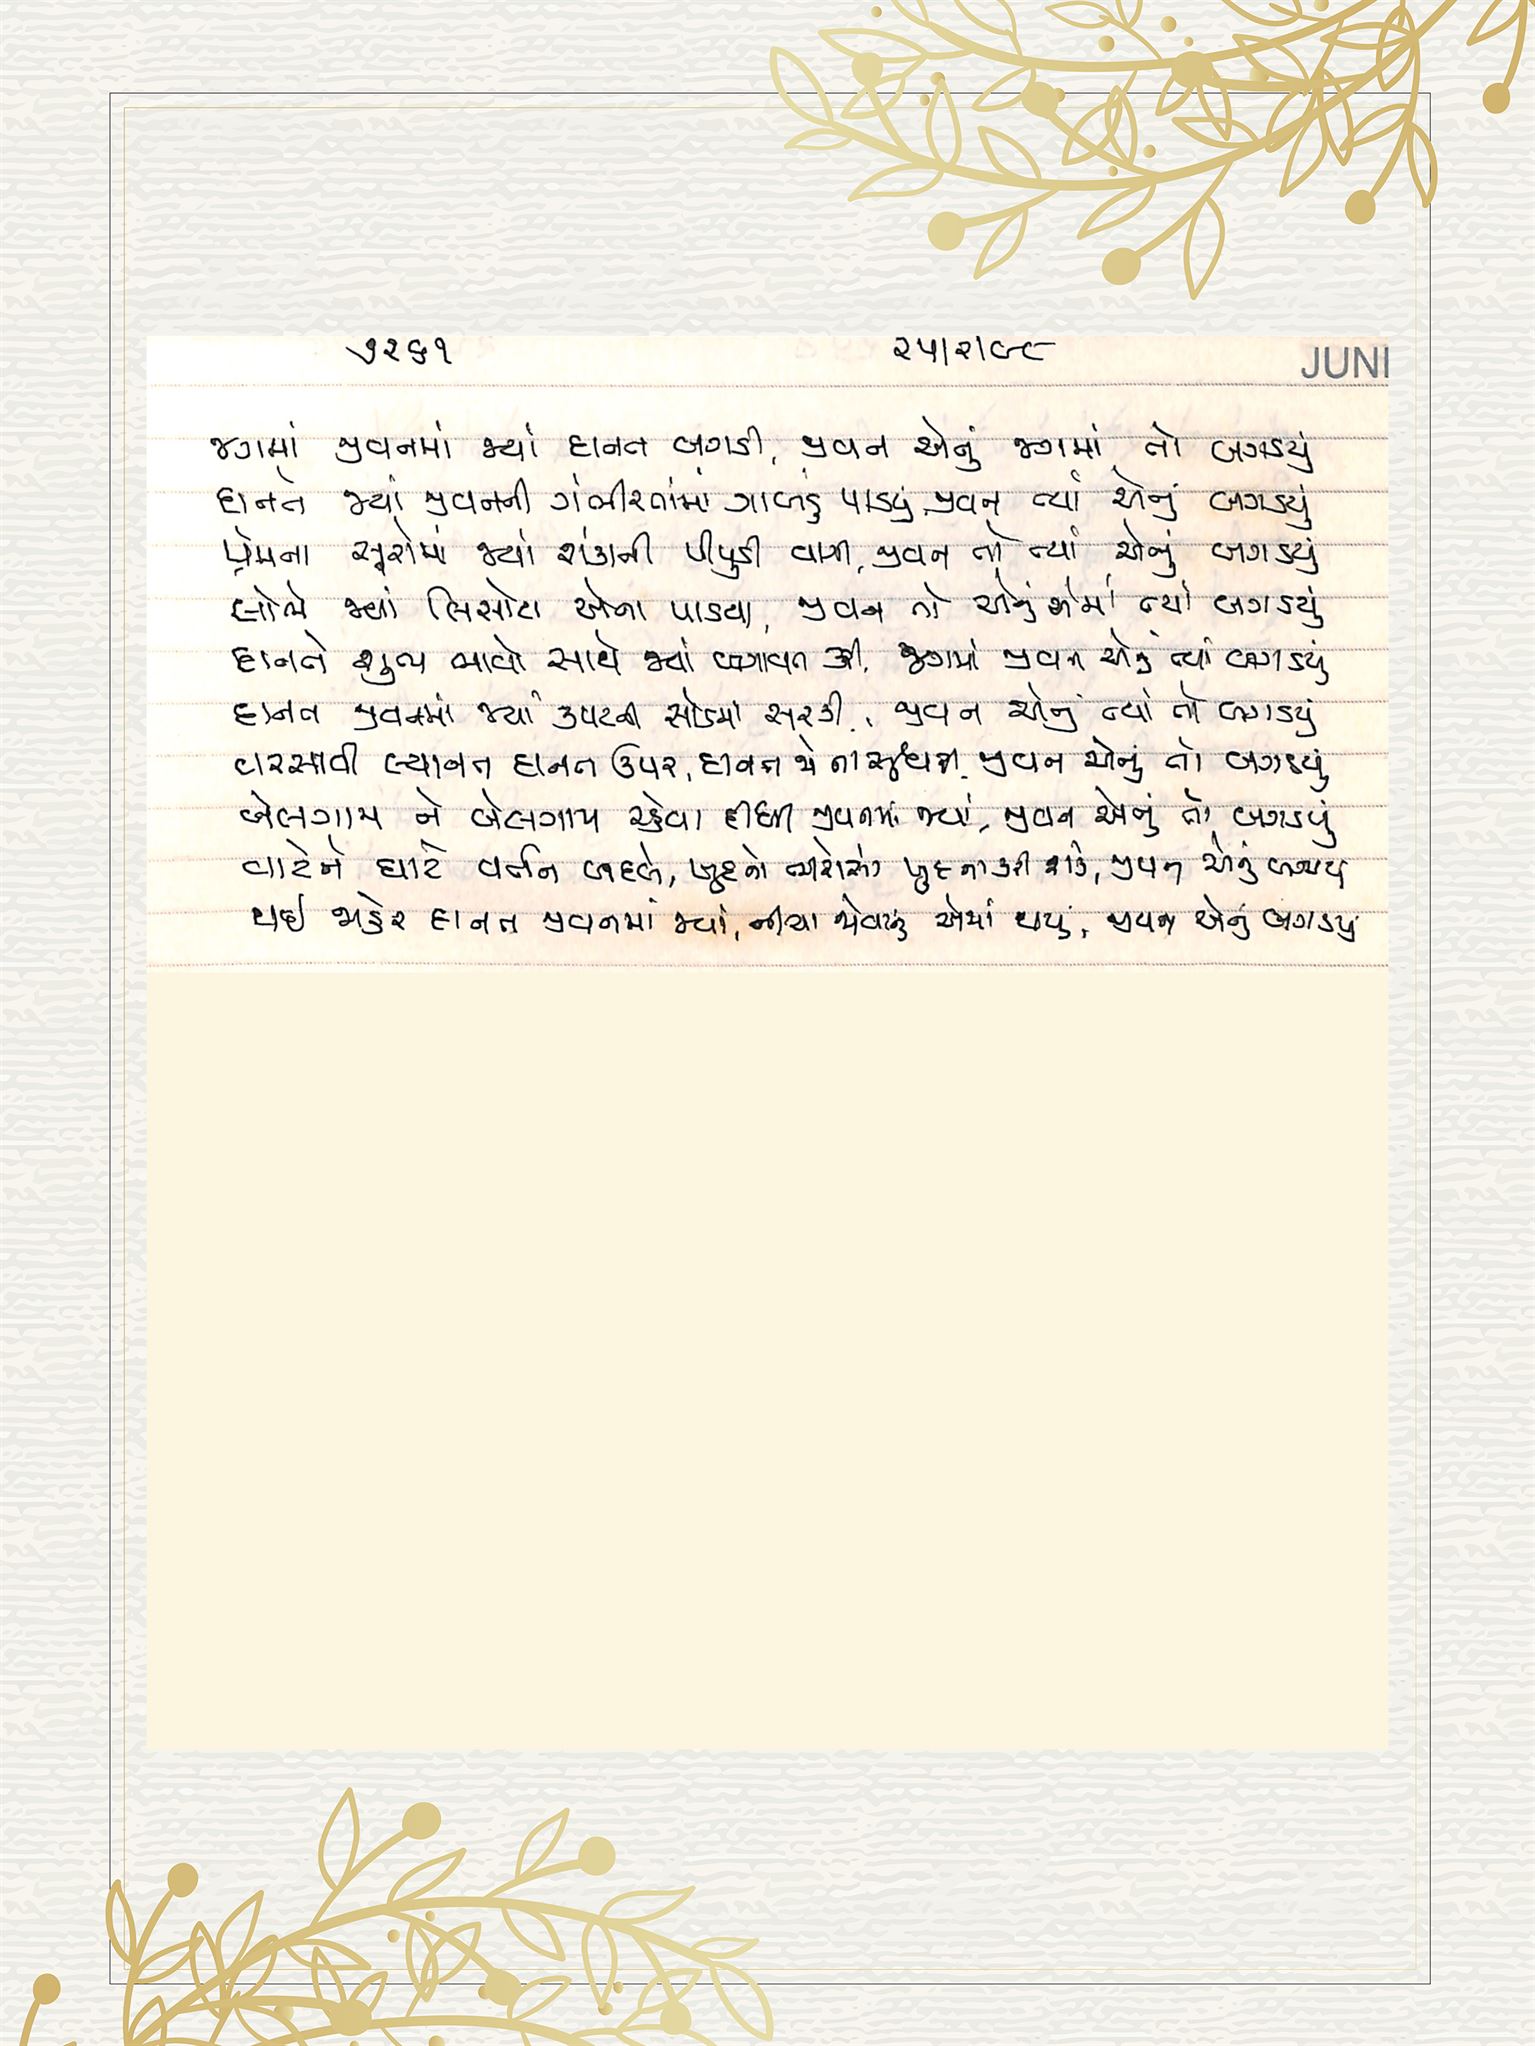 ૭૨૬૧ ૨૫/૨/૯૮ JUNI
જગમાં જીવનમાં જ્યાં દાનત બગડી, જીવન એનું જગમાં તો બગડયું
દાનતે જ્યાં જીવનની ગંભીરતામાં ગાબડું પાડયું જીવન ત્યાં એનું બગડયું
પ્રેમના સૂરોમાં જ્યાં શંકાની પીપુડી વાગી, જીવન તો ત્યાં એનું બગડયું
લોભે જ્યાં લિસોટા એના પાડયા, જીવન તો એનું એમાં ત્યાં બગડયું
દાનતે શુભ ભાવો સાથે જ્યાં બગાવત કરી, જગમાં જીવન એનું ત્યાં બગડયું
દાનત જીવનમાં જ્યાં કપટની સોડમાં સરકી, જીવન એનું ત્યાં તો બગડયું
વરસાવી લ્યાનત દાનત ઉપર, દાનત જે ના સુધરી, જીવન એનું તો બગડયું
બેલગામ ને બેલગામ રહેવા દીધી જીવનમાં જ્યાં, જીવન એનું તો બગડયું
વાટે ને ઘાટે વર્તન બદલે, ખુદનો ભરોસો ખુદ ના કરી શકે, જીવન એનું બગડયું
થઈ જાહેર દાનત જીવનમાં જ્યાં, નીચા જોવાનું એમાં થયું, જીવન એનું બગડયું